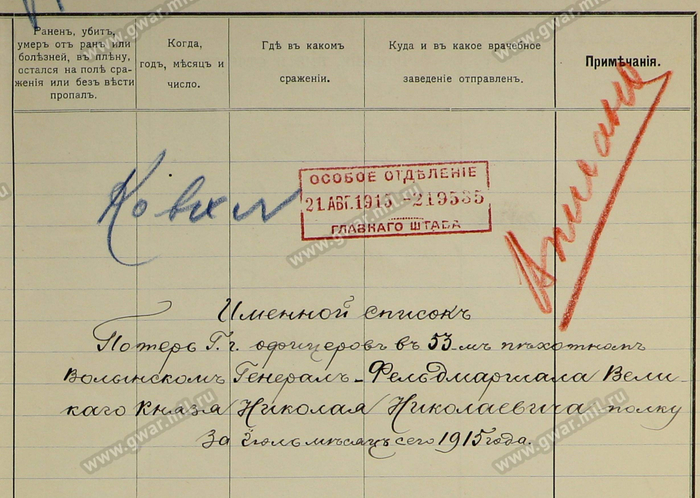 Ранен, убит, умер от ран или болѣзней, въ плѣну, остался на полѣ сражения или безъ вѣсти пропалъ.
Когда, год, мѣсяц и число.
Гдѣ въ каком сражении.
Куда и въ какое врачебное заведение отправлен.
Примѣчанія.
ОСОБОЕ ОТДѢЛЕНІЕ
21.АВГ.1915 -219585
ГЛАВНАГО ШТАБА
Именной списокъ
Потерь Г.г. офицеровъ въ 53-мъ пѣхотномъ
Волынскомъ Генералъ-Фельдмаршала Вели-
каго Князя Николая Николаевича полку
за Іюль мѣсяцъ сего 1915 года.
www.gwar.mil.ru
www.gwar.mil.ru
www.gwar.mil.ru
www.gwar.mil.ru
www.gwar.mil.ru